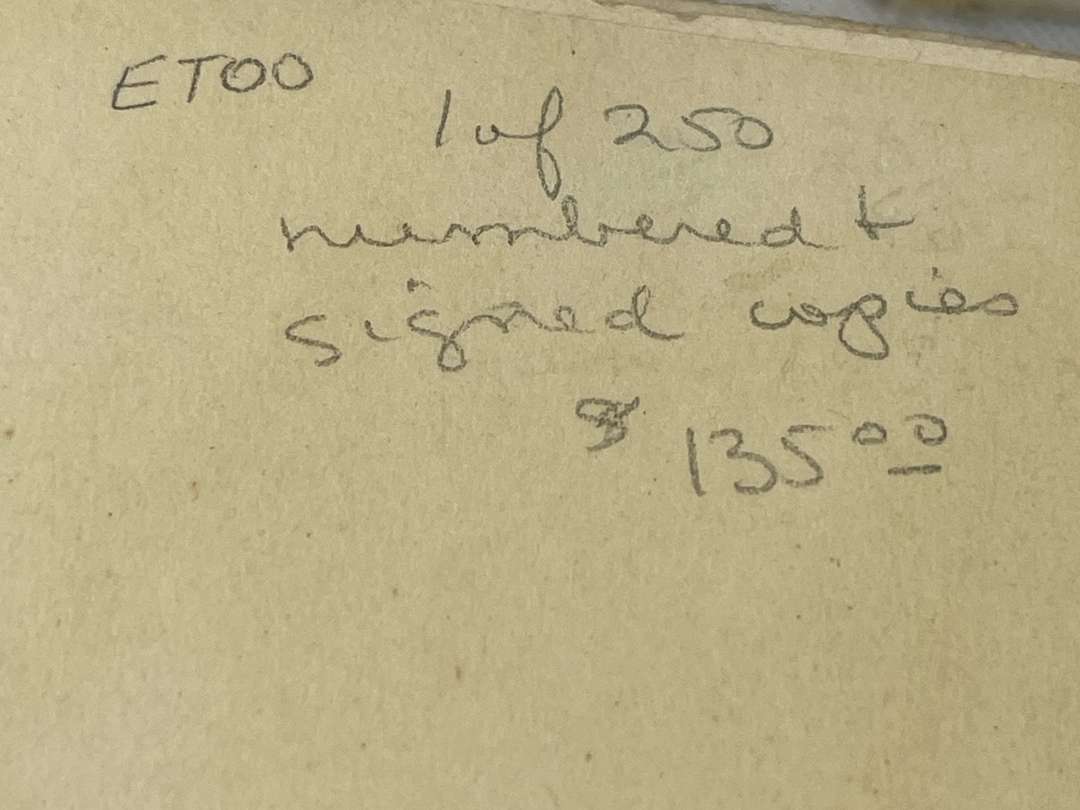 ETOO
1 of 250
numbered &
signed copies
$ 135 00